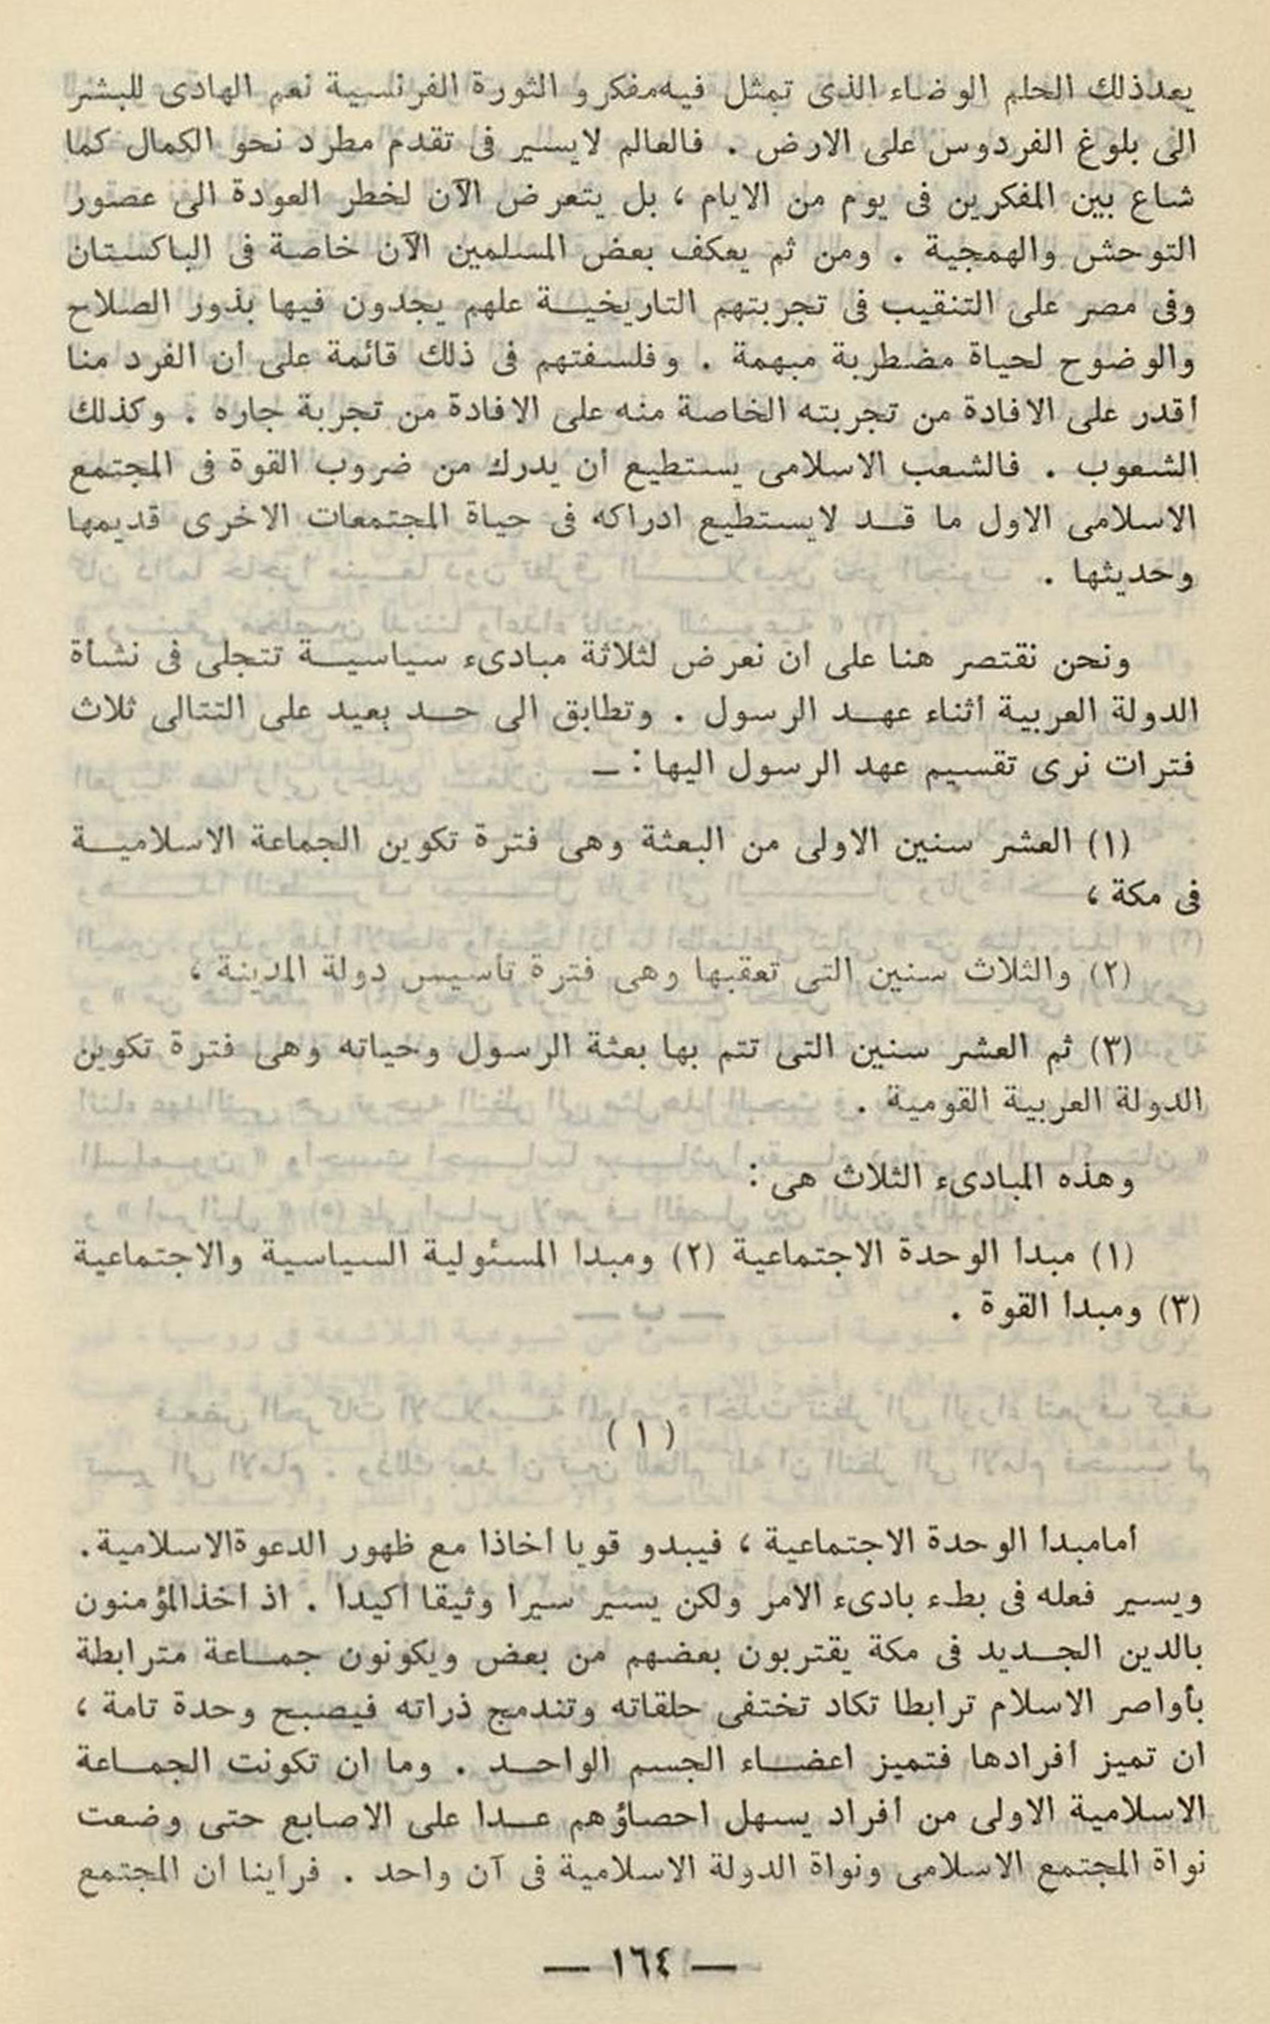 يعد ذلك الحلم الوضاء الذى تمثل فيه مفكرو الثورة الفرنسية نعم الهادى للبشر
الى بلوغ الفردوس على الارض . فالعالم لايسير فى تقدم مطرد نحو الكمال كما
شاع بين المفكرين فى يوم من الايام ، بل يتعرض الآن لخطر العودة الى عصور
التوحش والهمجية . ومن ثم يعكف بعض المسلمين الآن خاصة فى الباكستان
وفى مصر على التنقيب فى تجربتهم التاريخية علهم يجدون فيها بذور الصلاح
والوضوح لحياة مضطربة مبهمة . وفلسفتهم فى ذلك قائمة على ان الفرد منا
أقدر على الافادة من تجربته الخاصة منه على الافادة من تجربة جاره . وكذلك
الشعوب . فالشعب الاسلامى يستطيع ان يدرك من ضروب القوة فى المجتمع
الاسلامى الاول ما قد لايستطيع ادراكه فى حياة المجتمعات الاخرى قديمها
وحديثها .
ونحن نقتصر هنا على ان نعرض لثلاثة مبادىء سياسية تتجلى فى نشأة
الدولة العربية أثناء عهد الرسول . وتطابق الى حد بعيد على التتالى ثلاث
فترات نرى تقسيم عهد الرسول اليها : ــ
(١) العشر سنين الاولى من البعثة وهى فترة تكوين الجماعة الاسلامية
فى مكة ،
(٢) والثلاث سنين التى تعقبها وهى فترة تأسيس دولة المدينة ،
(٣) ثم العشر سنين التى تتم بها بعثة الرسول وحياته وهى فترة تكوين
الدولة العربية القومية .
وهذه المبادىء الثلاث هى :
(١) مبدأ الوحدة الاجتماعية (٢) ومبدأ المسئولية السياسية والاجتماعية
(٣) ومبدأ القوة .
( ١ )
أما مبدأ الوحدة الاجتماعية ، فيبدو قويا أخاذا مع ظهور الدعوة الاسلامية .
ويسير فعله فى بطء بادىء الامر ولكن يسير سيرا وثيقا أكيدا . اذ أخذ المؤمنون
بالدين الجديد فى مكة يقتربون بعضهم من بعض ويكونون جماعة مترابطة
بأواصر الاسلام ترابطا تكاد تختفى حلقاته وتندمج ذراته فيصبح وحدة تامة ،
ان تميز أفرادها فتميز اعضاء الجسم الواحد . وما ان تكونت الجماعة
الاسلامية الاولى من أفراد يسهل احصاؤهم عدا على الاصابع حتى وضعت
نواة المجتمع الاسلامى ونواة الدولة الاسلامية فى آن واحد . فرأينا ان المجتمع
— ١٦٤ —